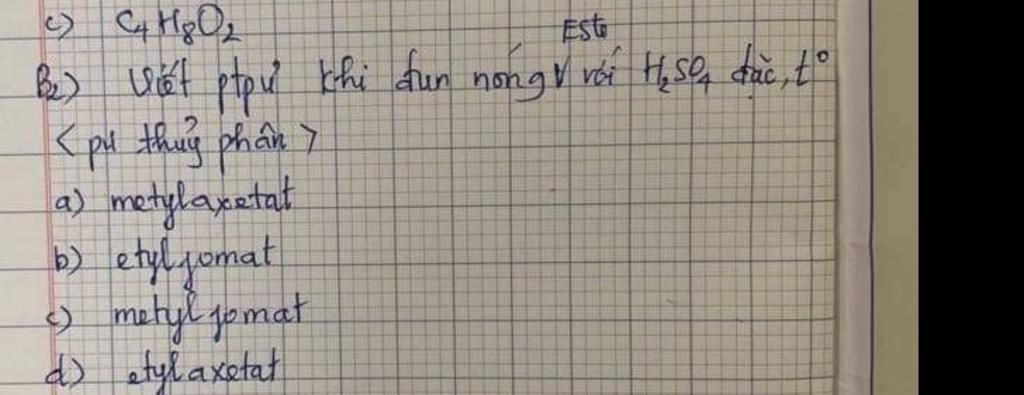 c) C₄H₈O₂
Este
B₂) Viết ptpư khi đun nóng với H₂SO₄ đặc, t°
<pư thuỷ phân>
a) metylaxetat
b) etylfomat
c) metylfomat
d) etylaxetat